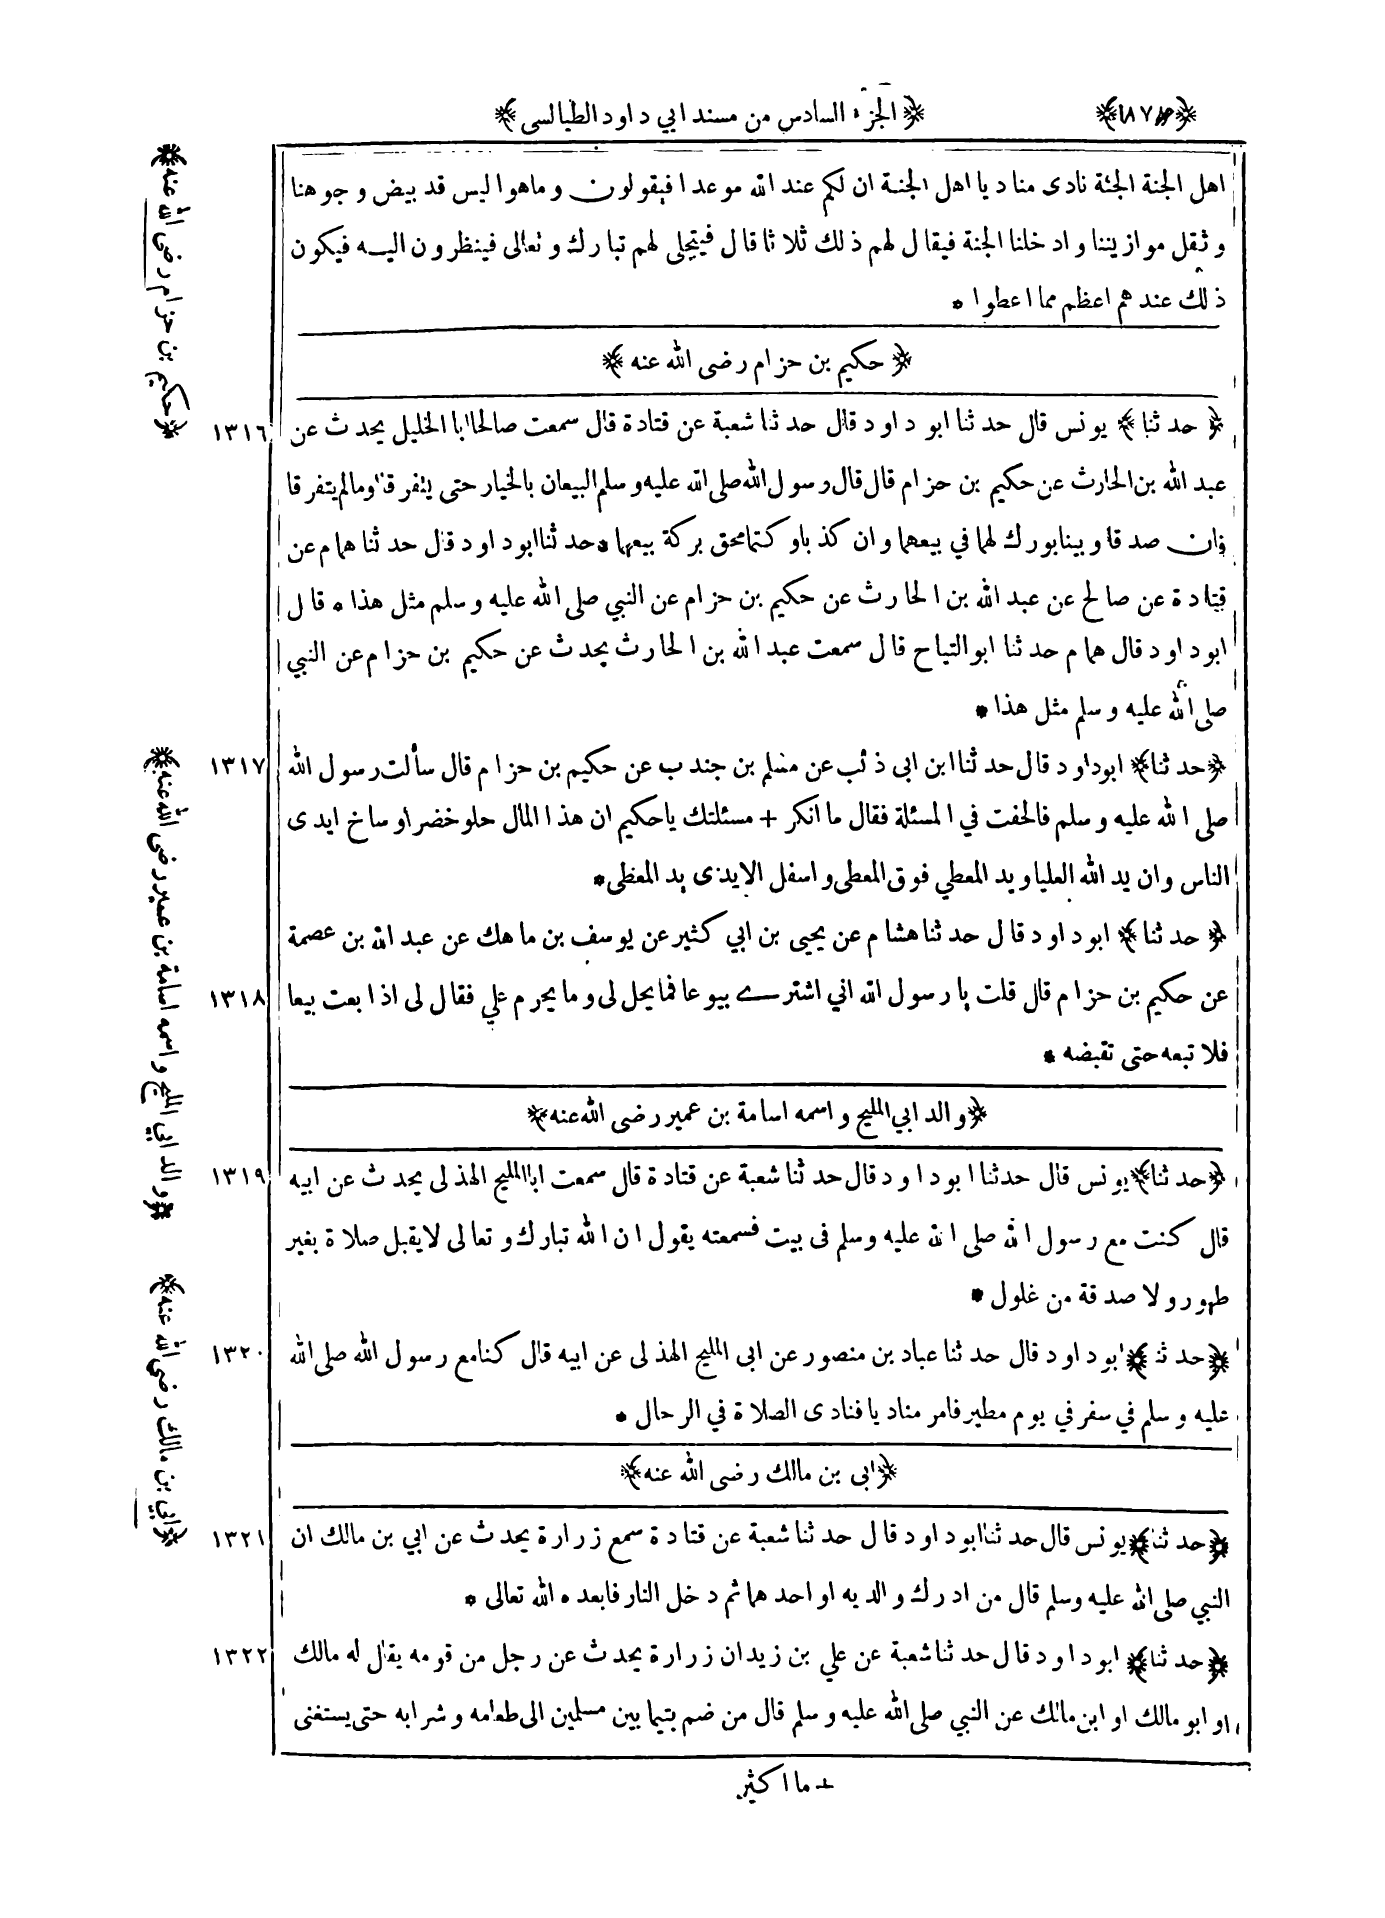 ﴿١٨٧﴾
﴿الجزء السادس من مسند ابي داود الطيالسى﴾
اهل الجنة الجنة نادى مناد يا اهل الجنة ان لكم عند الله موعدا فيقولون وماهو اليس قد بيض وجوهنا
وثقل موازيننا وادخلنا الجنة فيقال لهم ذلك ثلاثا قال فيتجلى لهم تبارك وتعالى فينظرون اليه فيكون
ذلك عندهم اعظم مما اعطوا *
﴿حكيم بن حزام رضى الله عنه﴾
١٣١٦ ﴿حدثنا﴾ يونس قال حدثنا ابو داود قال حدثنا شعبة عن قتادة قال سمعت صالحا ابا الخليل يحدث عن
عبد الله بن الحارث عن حكيم بن حزام قال قال رسول الله صلى الله عليه وسلم البيعان بالخيار حتى يتفرقا ومالم يتفرقا
فان صدقا وبينا بورك لهما في بيعهما وان كذبا وكتما محق بركة بيعهما * حدثنا ابو داود قال حدثنا همام عن
قتادة عن صالح عن عبد الله بن الحارث عن حكيم بن حزام عن النبي صلى الله عليه وسلم مثل هذا * قال
ابو داود قال همام حدثنا ابو التياح قال سمعت عبد الله بن الحارث يحدث عن حكيم بن حزام عن النبي
صلى الله عليه وسلم مثل هذا *
١٣١٧ ﴿حدثنا﴾ ابو داود قال حدثنا ابن ابى ذئب عن مسلم بن جندب عن حكيم بن حزام قال سألت رسول الله
صلى الله عليه وسلم فالحفت في المسئلة فقال ما انكر + مسئلتك ياحكيم ان هذا المال حلو خضر اوساخ ايدى
الناس وان يد الله العليا ويد المعطي فوق المعطى واسفل الايدى يد المعطى *
﴿حدثنا﴾ ابو داود قال حدثنا هشام عن يحيى بن ابي كثير عن يوسف بن ماهك عن عبد الله بن عصمة
١٣١٨ عن حكيم بن حزام قال قلت يا رسول الله اني اشترے بيوعا فما يحل لى وما يحرم علي فقال لى اذا بعت بيعا
فلا تبعه حتى تقبضه *
﴿والد ابي المليح واسمه اسامة بن عمير رضى الله عنه﴾
١٣١٩ ﴿حدثنا﴾ يونس قال حدثنا ابو داود قال حدثنا شعبة عن قتادة قال سمعت ابا المليح الهذلى يحدث عن ابيه
قال كنت مع رسول الله صلى الله عليه وسلم فى بيت فسمعته يقول ان الله تبارك وتعالى لا يقبل صلاة بغير
طهور ولا صدقة من غلول *
١٣٢٠ ﴿حدثنا﴾ ابو داود قال حدثنا عباد بن منصور عن ابى المليح الهذلى عن ابيه قال كنا مع رسول الله صلى الله
عليه وسلم في سفر في يوم مطير فامر مناديا فنادى الصلاة في الرحال *
﴿ابى بن مالك رضى الله عنه﴾
١٣٢١ ﴿حدثنا﴾ يونس قال حدثنا ابو داود قال حدثنا شعبة عن قتادة سمع زرارة يحدث عن ابي بن مالك ان
النبي صلى الله عليه وسلم قال من ادرك والديه او احدهما ثم دخل النار فابعده الله تعالى *
١٣٢٢ ﴿حدثنا﴾ ابو داود قال حدثنا شعبة عن علي بن زيد ان زرارة يحدث عن رجل من قومه يقال له مالك
او ابو مالك او ابن مالك عن النبي صلى الله عليه وسلم قال من ضم يتيما بين مسلمين الى طعامه وشرابه حتى يستغنى
+ ما اكثر
﴿حكيم بن حزام رضى الله عنه﴾
﴿والد ابي المليح واسمه اسامة بن عمير رضى الله عنه﴾
﴿ابي بن مالك رضى الله عنه﴾